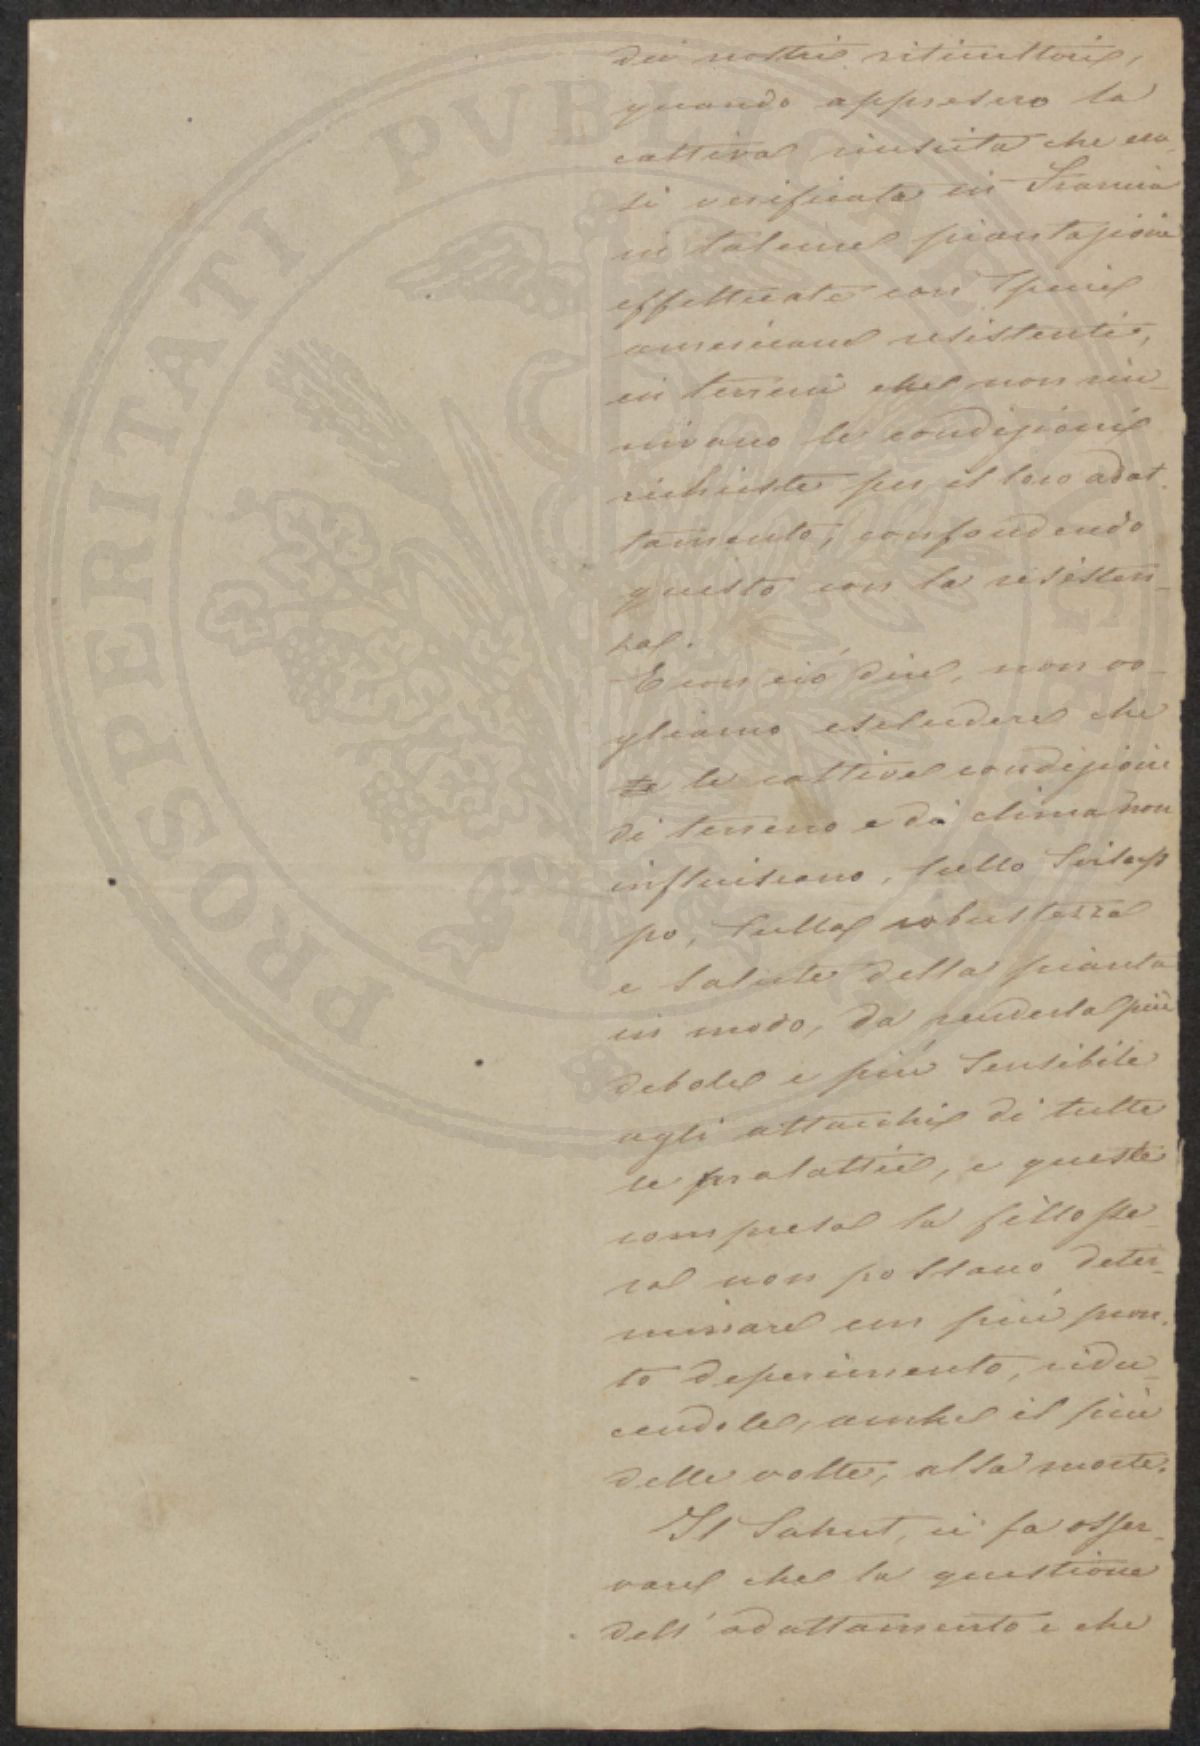 dei nostri viticultori,
quando appresero la
cattiva riuscita che era
si verificata in Francia
in talune piantagioni
effettuate con specie
americane resistenti,
in terreni che non riu-
nivano le condizioni
richieste per il loro adat-
tamento, confondendo
questo con la resisten-
za.
E con ciò dire, non vo-
gliamo escludere che
le cattive condizioni
di terreno e di clima non
influiscano, sullo svilup
po, sulla robustezza
e salute della pianta
in modo, da renderla più
debole e più sensibile
agli attacchi di tutte
le malattie, e queste
compresa la fillosse-
ra non possano deter-
minare un più pron-
to deperimento, ridu-
cendole, anche il più
delle volte, alla morte.
Il Sahut, ci fa osser-
vare che la questione
dell'adattamento e che
PROSPERITATI PVBLICAE